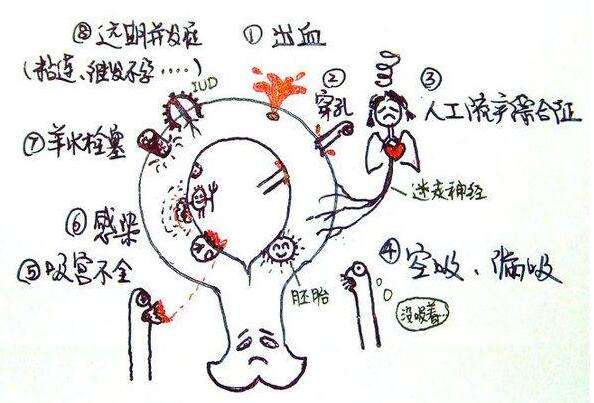 ① 出血
② 穿孔
③ 人工流产综合征
迷走神经
④ 空吸、漏吸
没吸着…
胚胎
⑤ 吸宫不全
⑥ 感染
⑦ 羊水栓塞
⑧ 远期并发症
(粘连、继发不孕……)
IUD